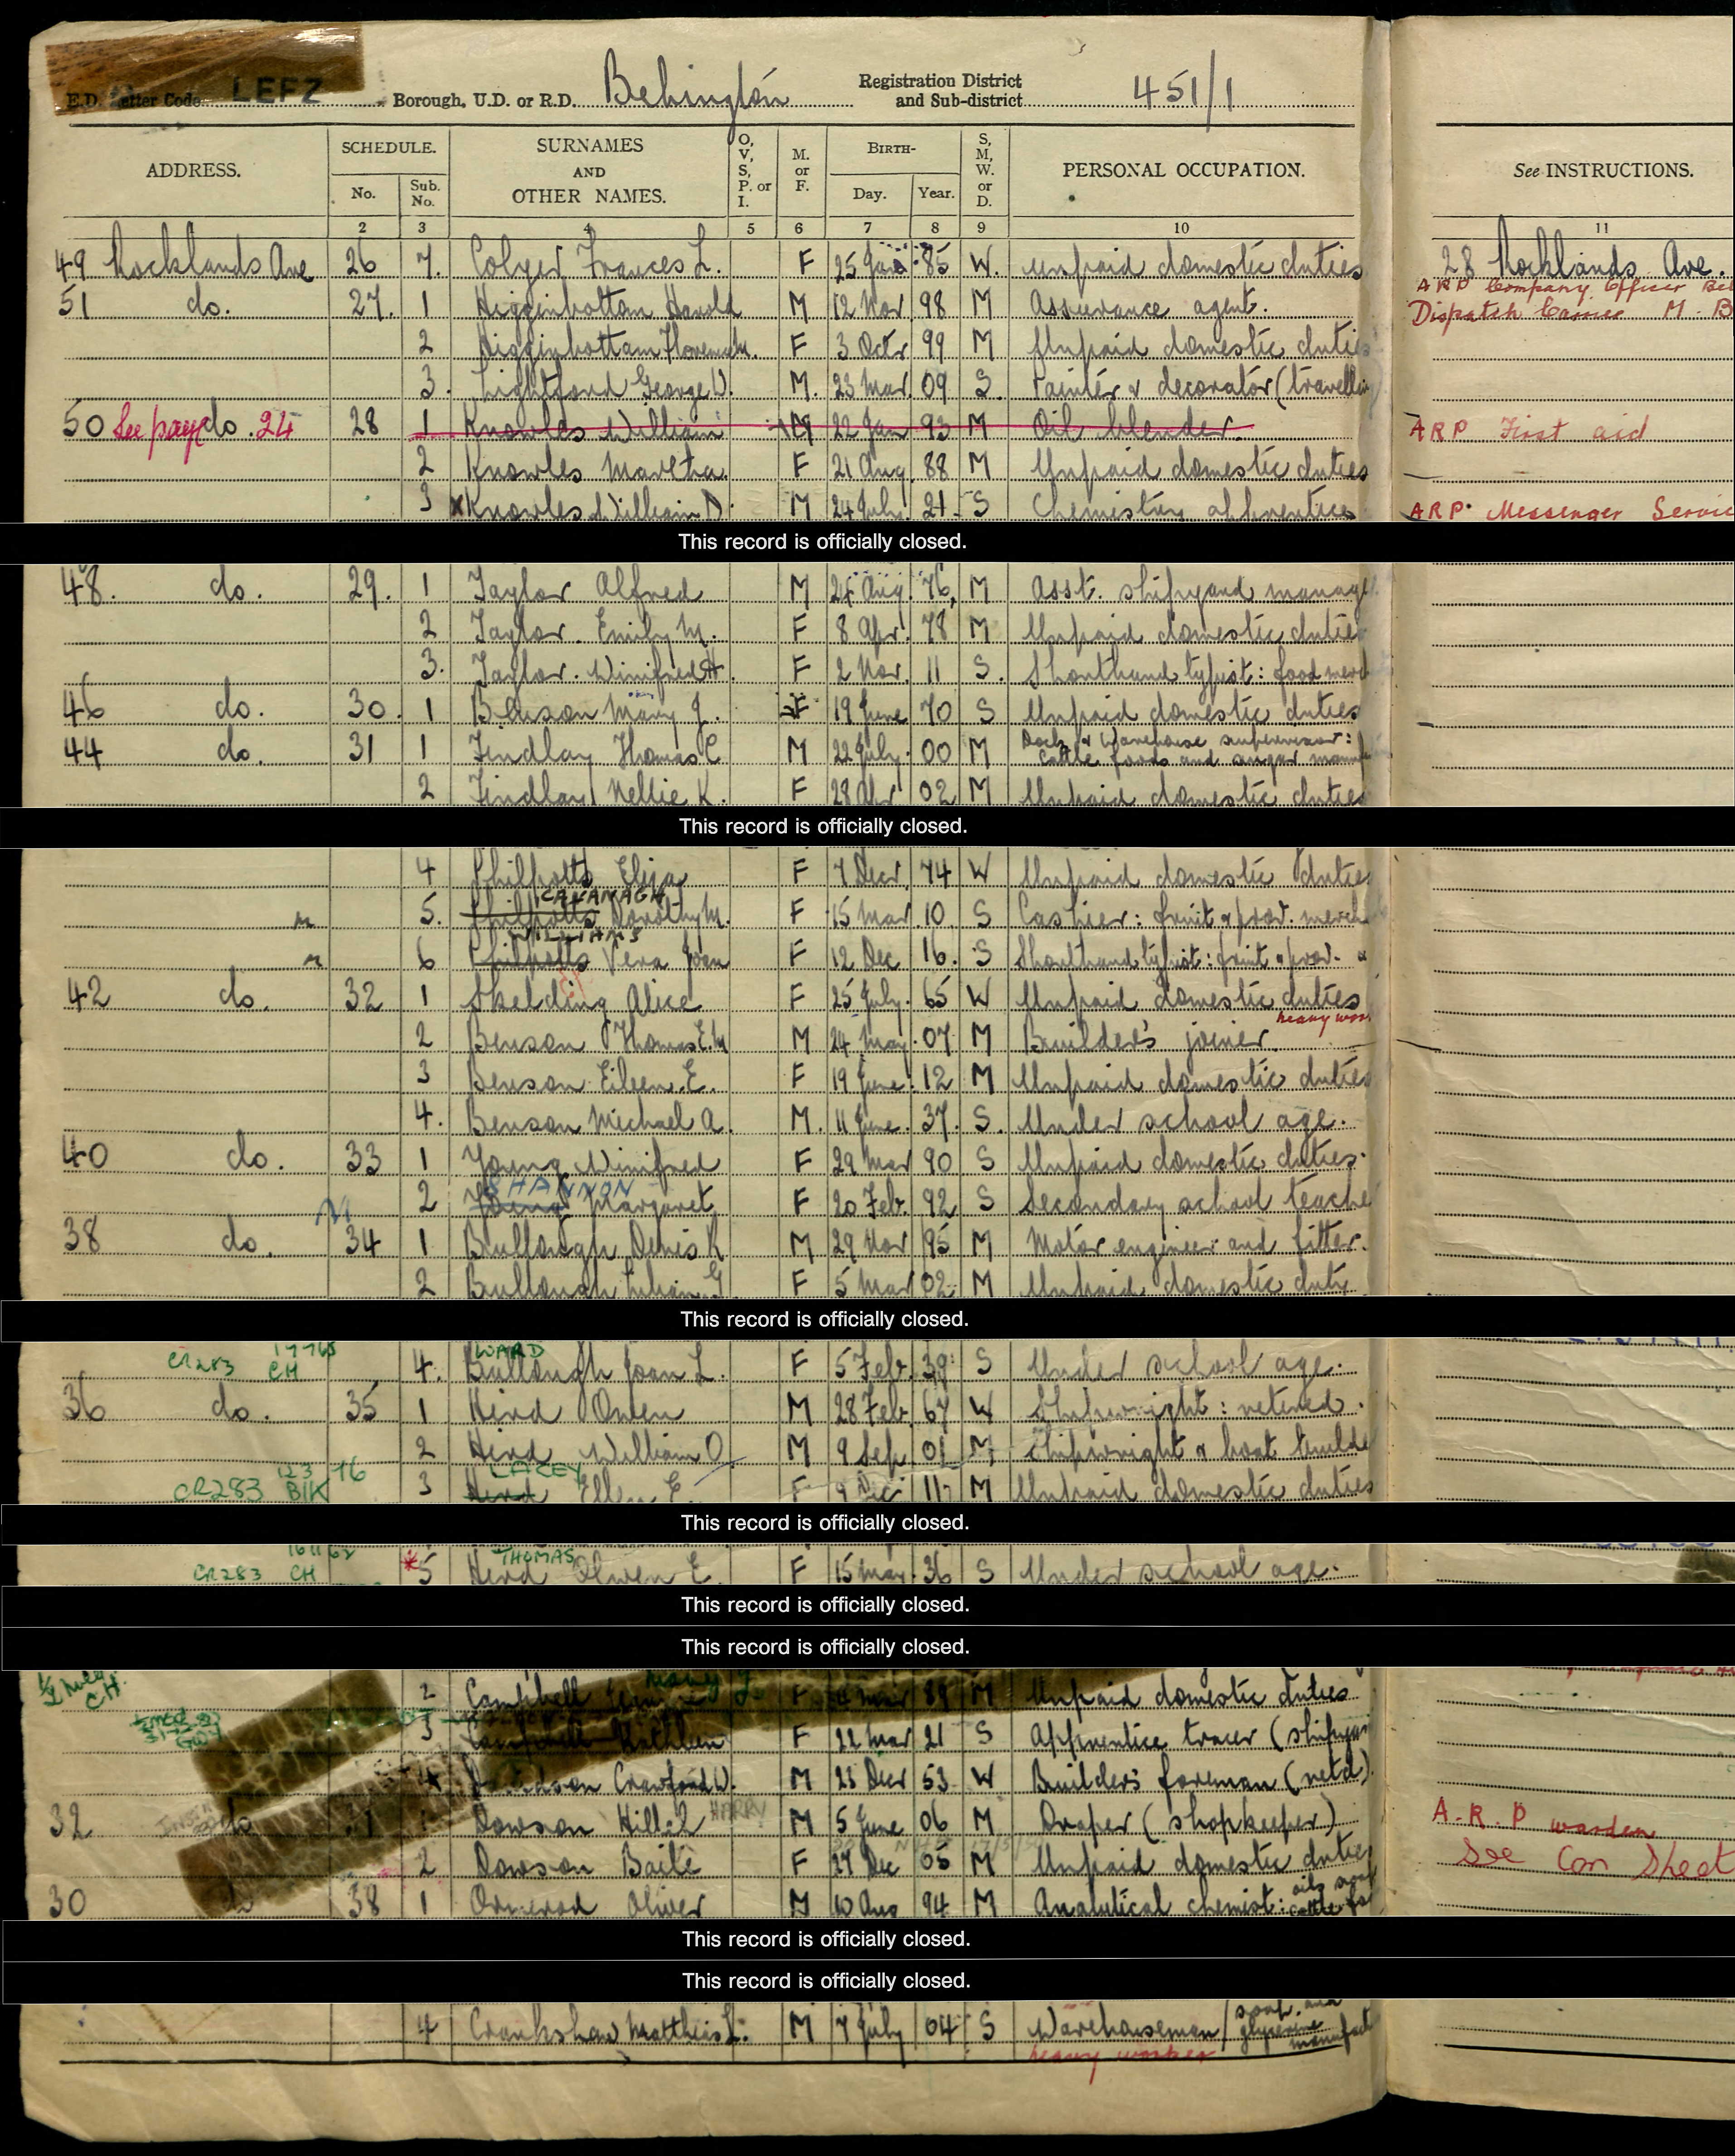 E.D. Letter Code LEFZ Borough, U.D. or R.D. Bebington Registration District and Sub-district 451/1
ADDRESS. SCHEDULE. No. Sub. No. SURNAMES AND OTHER NAMES. O, V, S, P. or I. M. or F. BIRTH- Day. Year. S, M, W. or D. PERSONAL OCCUPATION. See INSTRUCTIONS.
2 3 4 5 6 7 8 9 10 11
49 Rocklands Ave 26 7. Colyer Frances L. F 25 Jan 85 W. Unpaid domestic duties 28 Rocklands Ave.
ARP Company Officer
51 do. 27. 1 Higginbottom Harold M 12 Nov 98 M Assurance agent. Dispatch Carrier M. B
2 Higginbottam Florence M. F 3 Octr 99 M Unpaid domestic duties
3. Lightfoot George W. M. 23 Mar 09 S. Painter & decorator (travelling
50 See page do. 24 28 1 Knowles William M 22 Jan 93 M Oil blender. ARP First aid
2 Knowles Martha F 21 Aug 88 M Unpaid domestic duties
3 Knowles William D. M 24 July 21 S Chemistry apprentice ARP Messenger Servic
This record is officially closed.
48. do. 29. 1 Taylor Alfred M 24 Aug. 76, M Asst. shipyard manag
2 Taylor. Emily M. F 8 Apr. 78 M Unpaid domestic duties
3. Taylor. Winifred H. F 2 Nov. 11 S. Shorthand typist: food merch
46 do. 30. 1 Benson Mary J. F 19 June 70 S Unpaid domestic duties
44 do. 31 1 Findlay Thomas C M 22 July 00 M Dock & Warehouse supervisor: Cattle foods and sugar manuf
2 Findlay Nellie K. F 28 Apr 02 M Unpaid domestic duties
This record is officially closed.
4 Philpotts Eliza F 7 Decr. 74 W Unpaid domestic duties
CAVANAGH
5. Philpotts Dorothy M. F 15 Mar 10. S Cashier: fruit & prov. merch
WILLIAMS
6 Philpotts Vera Joan F 12 Dec 16. S Shorthand typist: fruit & prov.
42 do. 32 1 Skelding Alice F 25 July. 65 W Unpaid domestic duties
heavy wor
2 Benson Thomas E.M M 24 May 07 M Builder's joiner.
3 Benson Eileen. E. F 19 June. 12 M Unpaid domestic duties
4. Benson Michael A. M. 11 June. 37. S. Under school age.
40 do. 33 1 Young Winifred F 29 Mar 90 S Unpaid domestic duties.
SHANNON
M 2 Young Margaret F 20 Feb. 92 S Secondary school teache
38 do. 34 1 Bullough Denis R M 29 Nov 95 M Motor engineer and fitter.
2 Bullough Lilian G F 5 Mar 02 M Unpaid domestic duti
This record is officially closed.
CR283 CH WARD
4. Bullough Joan L. F 5 Feb. 39 S Under school age.
36 do. 35 1 Hird Owen M 28 Feb. 67 W Shipwright: retired.
2 Hird William O M 9 Sep 01 M Shipwright & boat builde
CR283 BIK LACEY
3 Hird Ellen E. F 9 Dec 11 M Unpaid domestic duties
This record is officially closed.
CR283 CH THOMAS
5 Hird Olwen E. F 15 May. 36 S Under school age.
This record is officially closed.
This record is officially closed.
CH. Mary J.
2 Campbell F Mar 89 M Unpaid domestic duties
3 Campbell Kathleen F 22 Mar 21 S Apprentice tracer (shipyar
Crawford W. M 23 Decr 53 W Builders foreman (retd).
32 do 1 Dowson Hillel HARRY M 5 June 06 M Draper (shopkeeper) A.R.P warden
2 Dowson Baile F 27 Dec 05 M Unpaid domestic duties See Con Sheet
30 do 38 1 Ormerod Oliver M 10 Aug 94 M Analytical chemist: oils soap cattle fo
This record is officially closed.
This record is officially closed.
4 Crankshaw Matthias L. M 7 July 04 S Warehouseman / soap and glycerine manufact
heavy worker